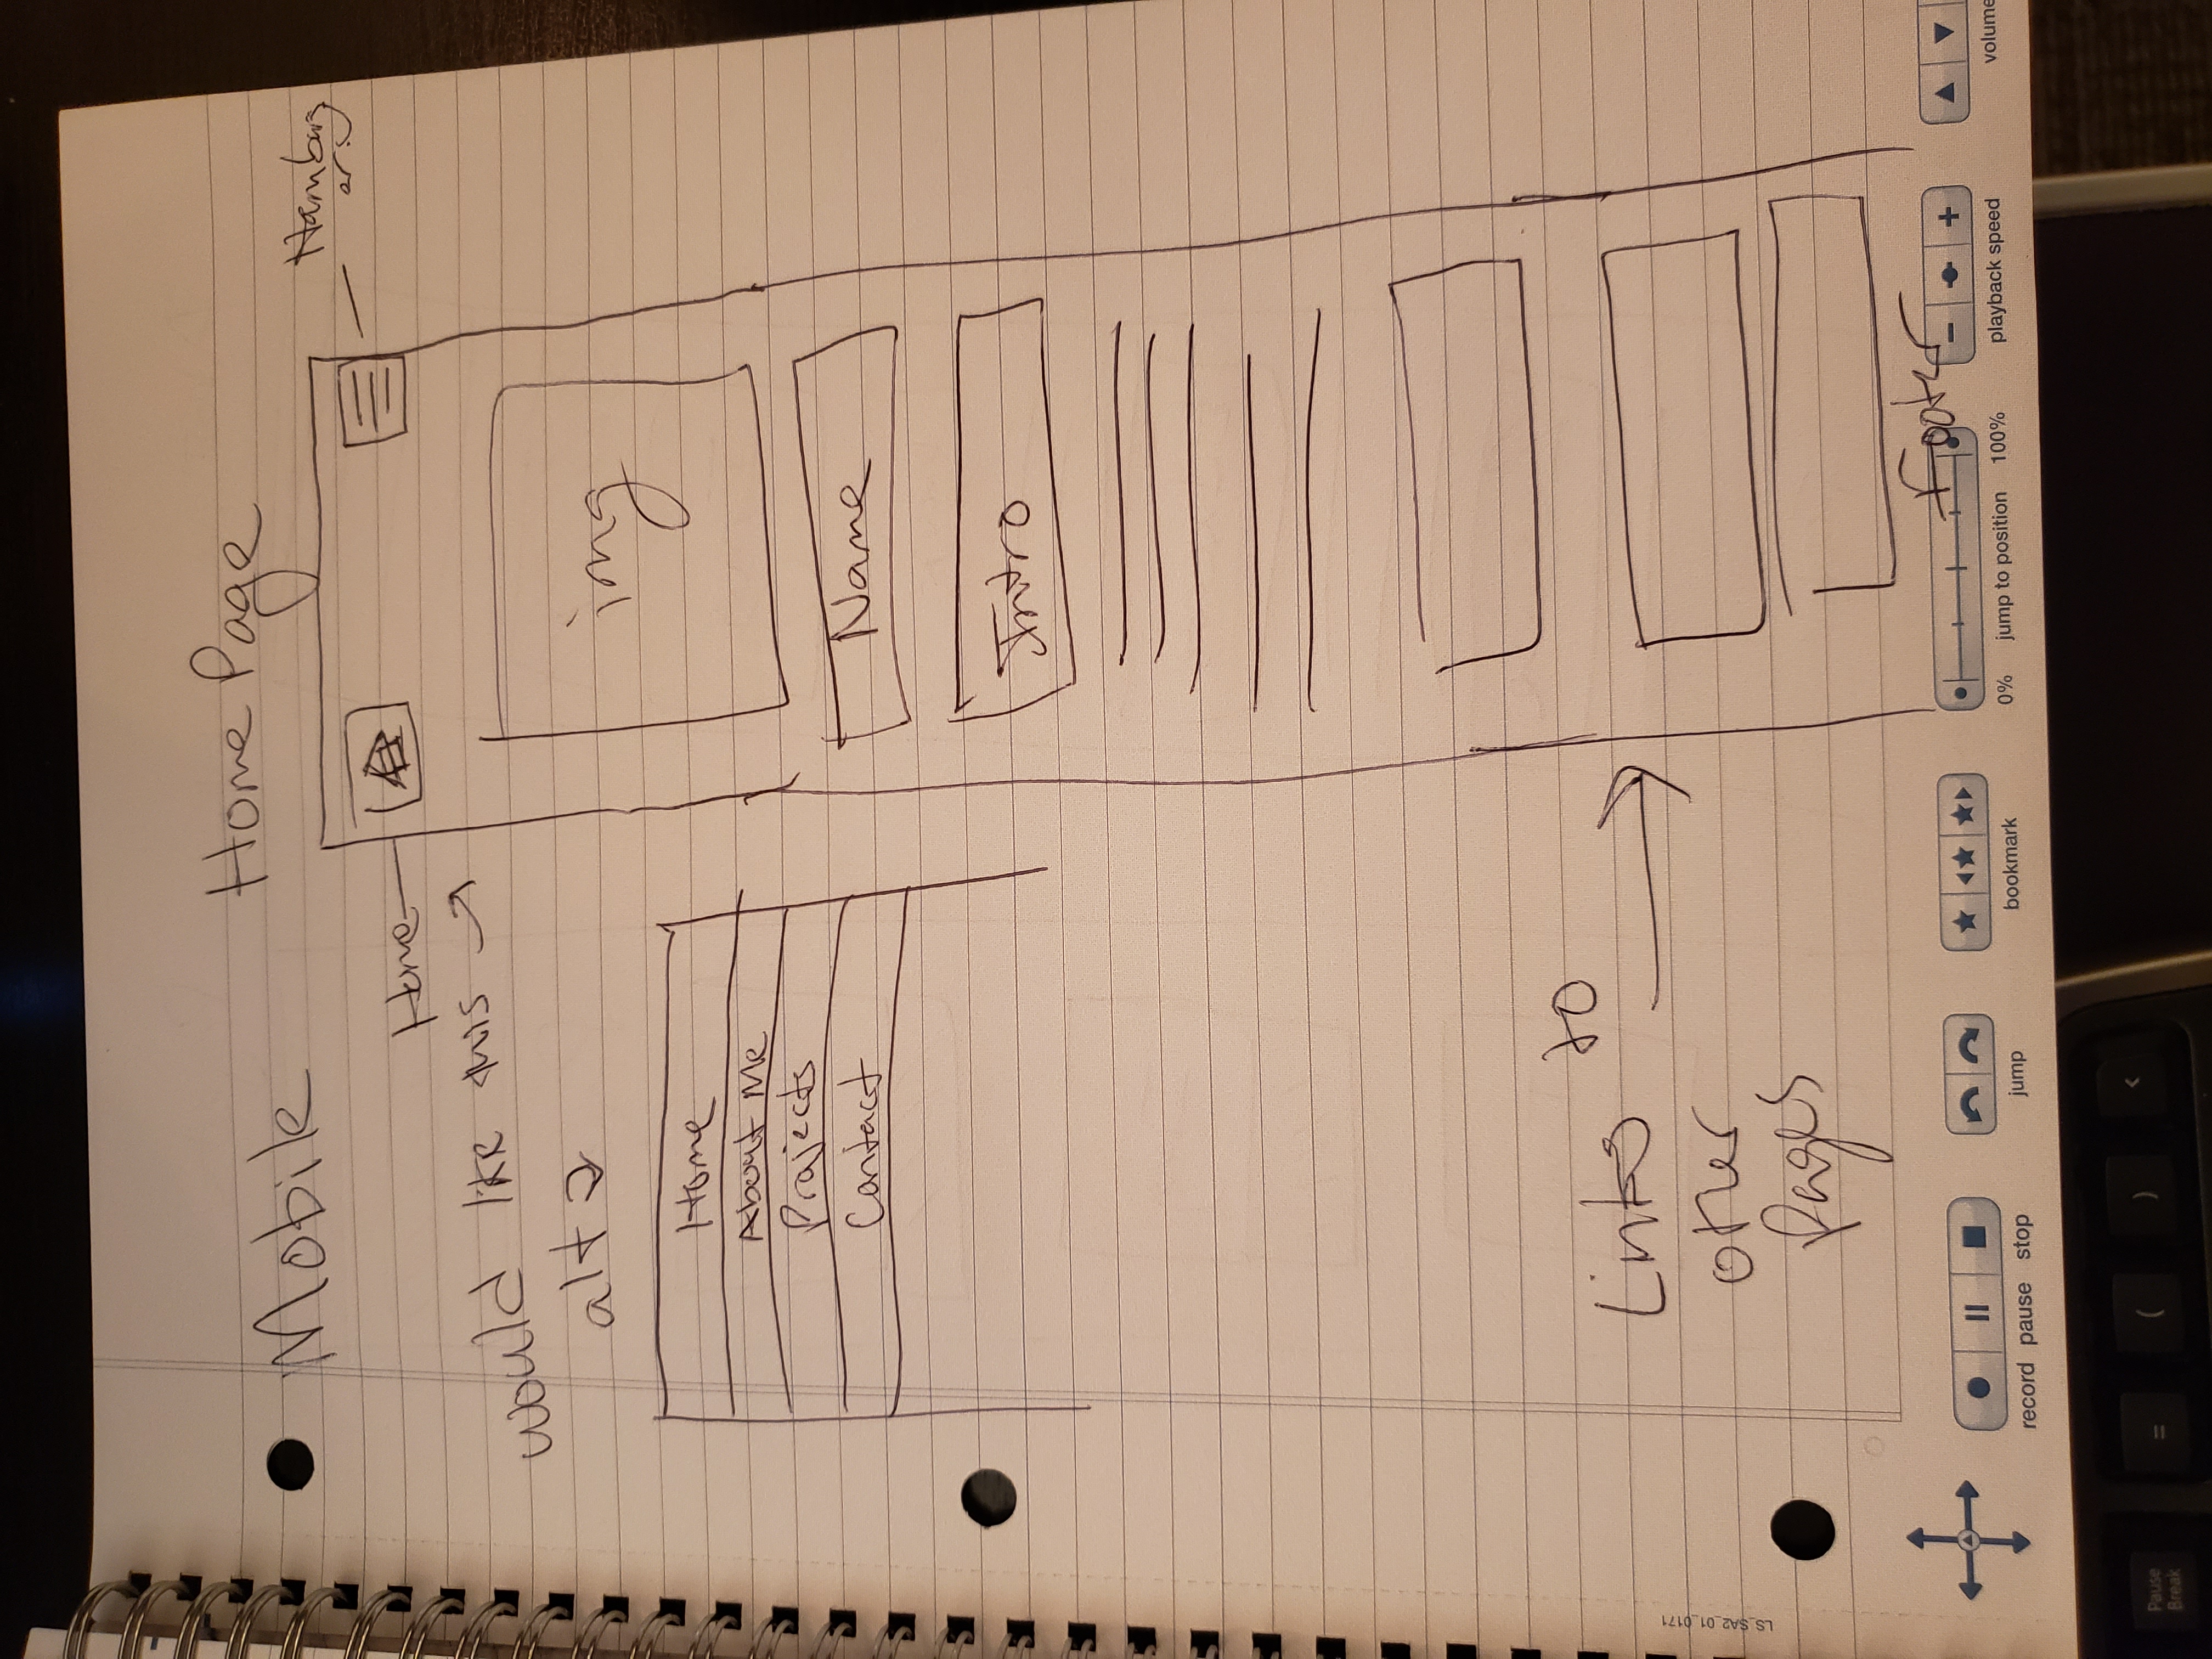 Home Page
Mobile
Hamburg
er
Home
would like this
alt
img
Home
About Me
Projects
Contact
Name
Intro
Links to
other
Pages
Footer
LS_SA2_01_0171
record pause stop
jump
bookmark
0% jump to position 100%
playback speed
volume
Pause
Break
= ( ) <